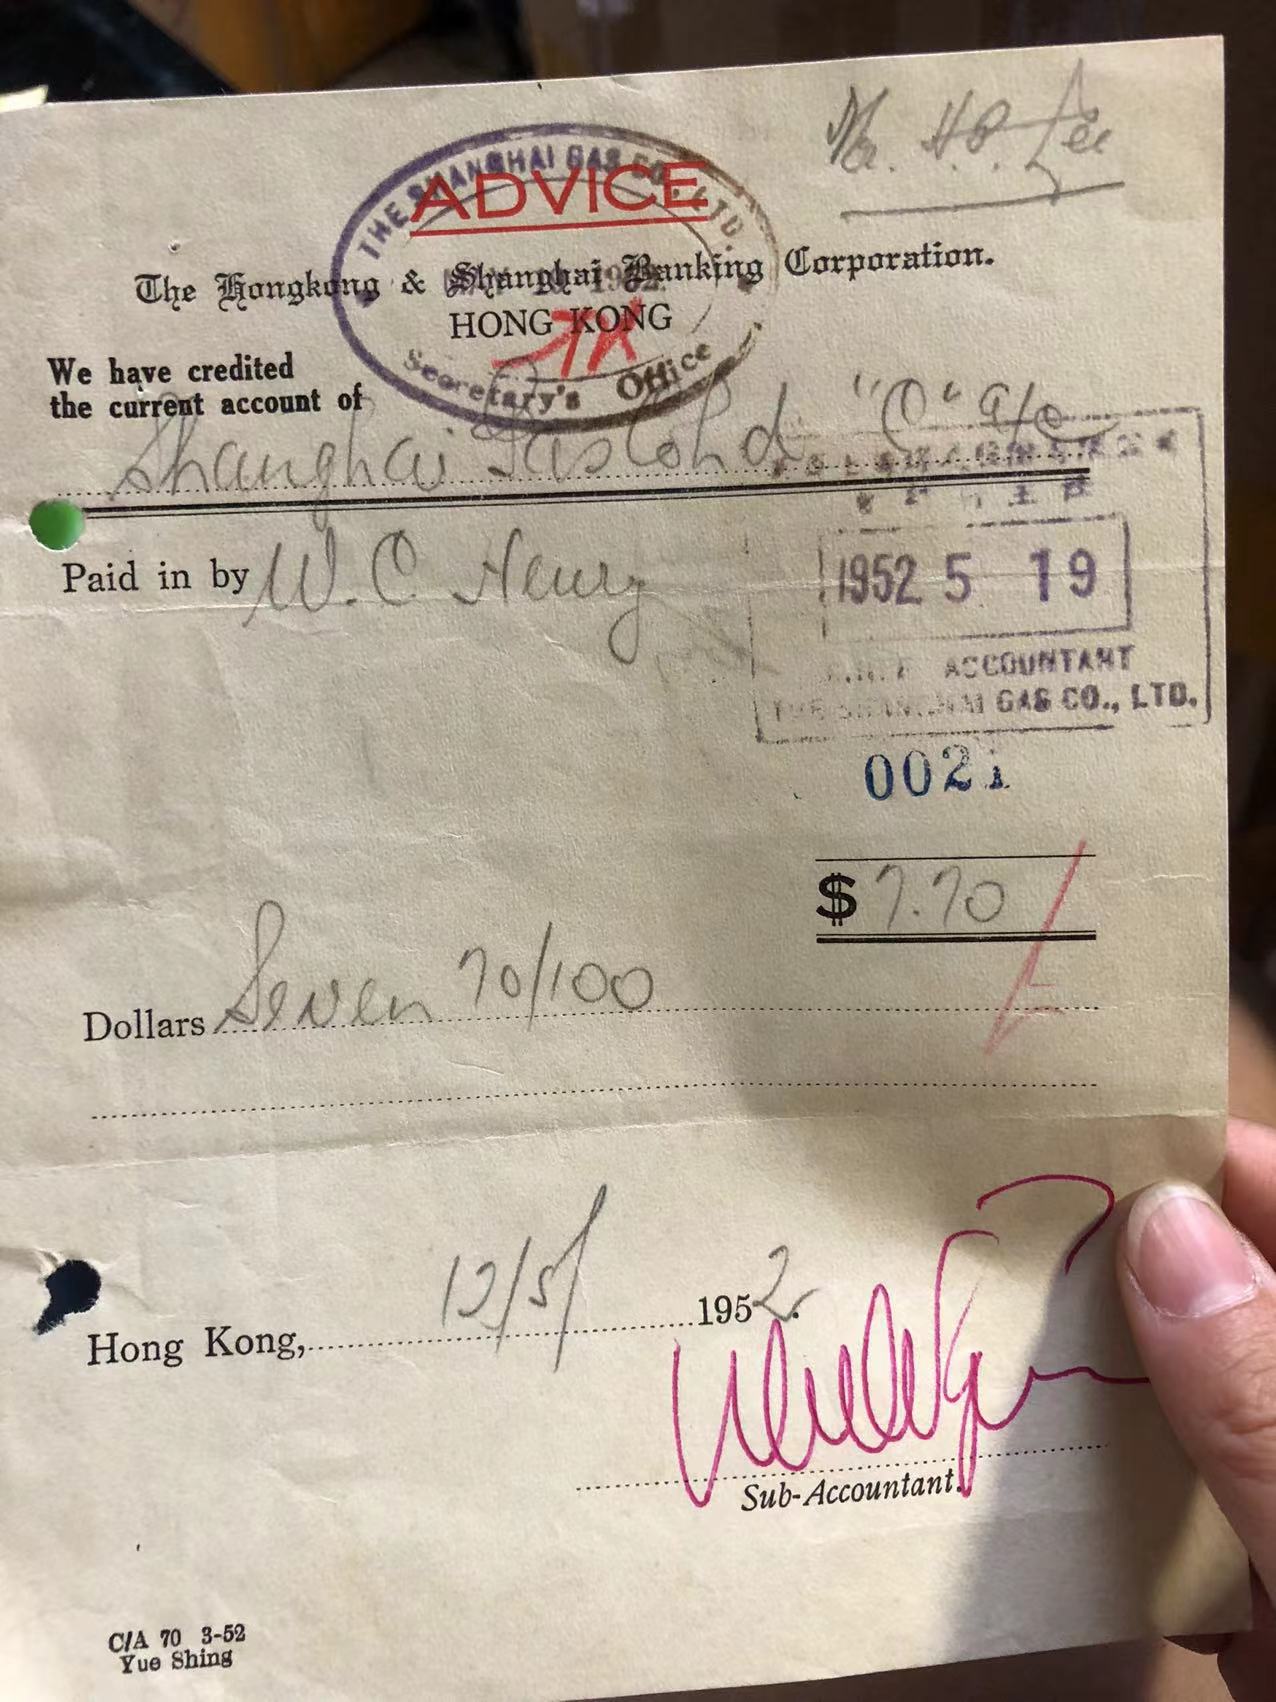 Mr. H.P. Lee
THE SHANGHAI GAS CO., LTD.
ADVICE
The Hongkong & Shanghai Banking Corporation.
HONG KONG
Secretary's Office
We have credited
the current account of
Shanghai Gas Co Ltd "O" a/c
Paid in by W. C. Henry
1952 5 19
ACCOUNTANT
THE SHANGHAI GAS CO., LTD.
0021
$ 7.70
Dollars Seven 70/100
Hong Kong, 12/5/ 1952.
Sub-Accountant.
C/A 70 3-52
Yue Shing